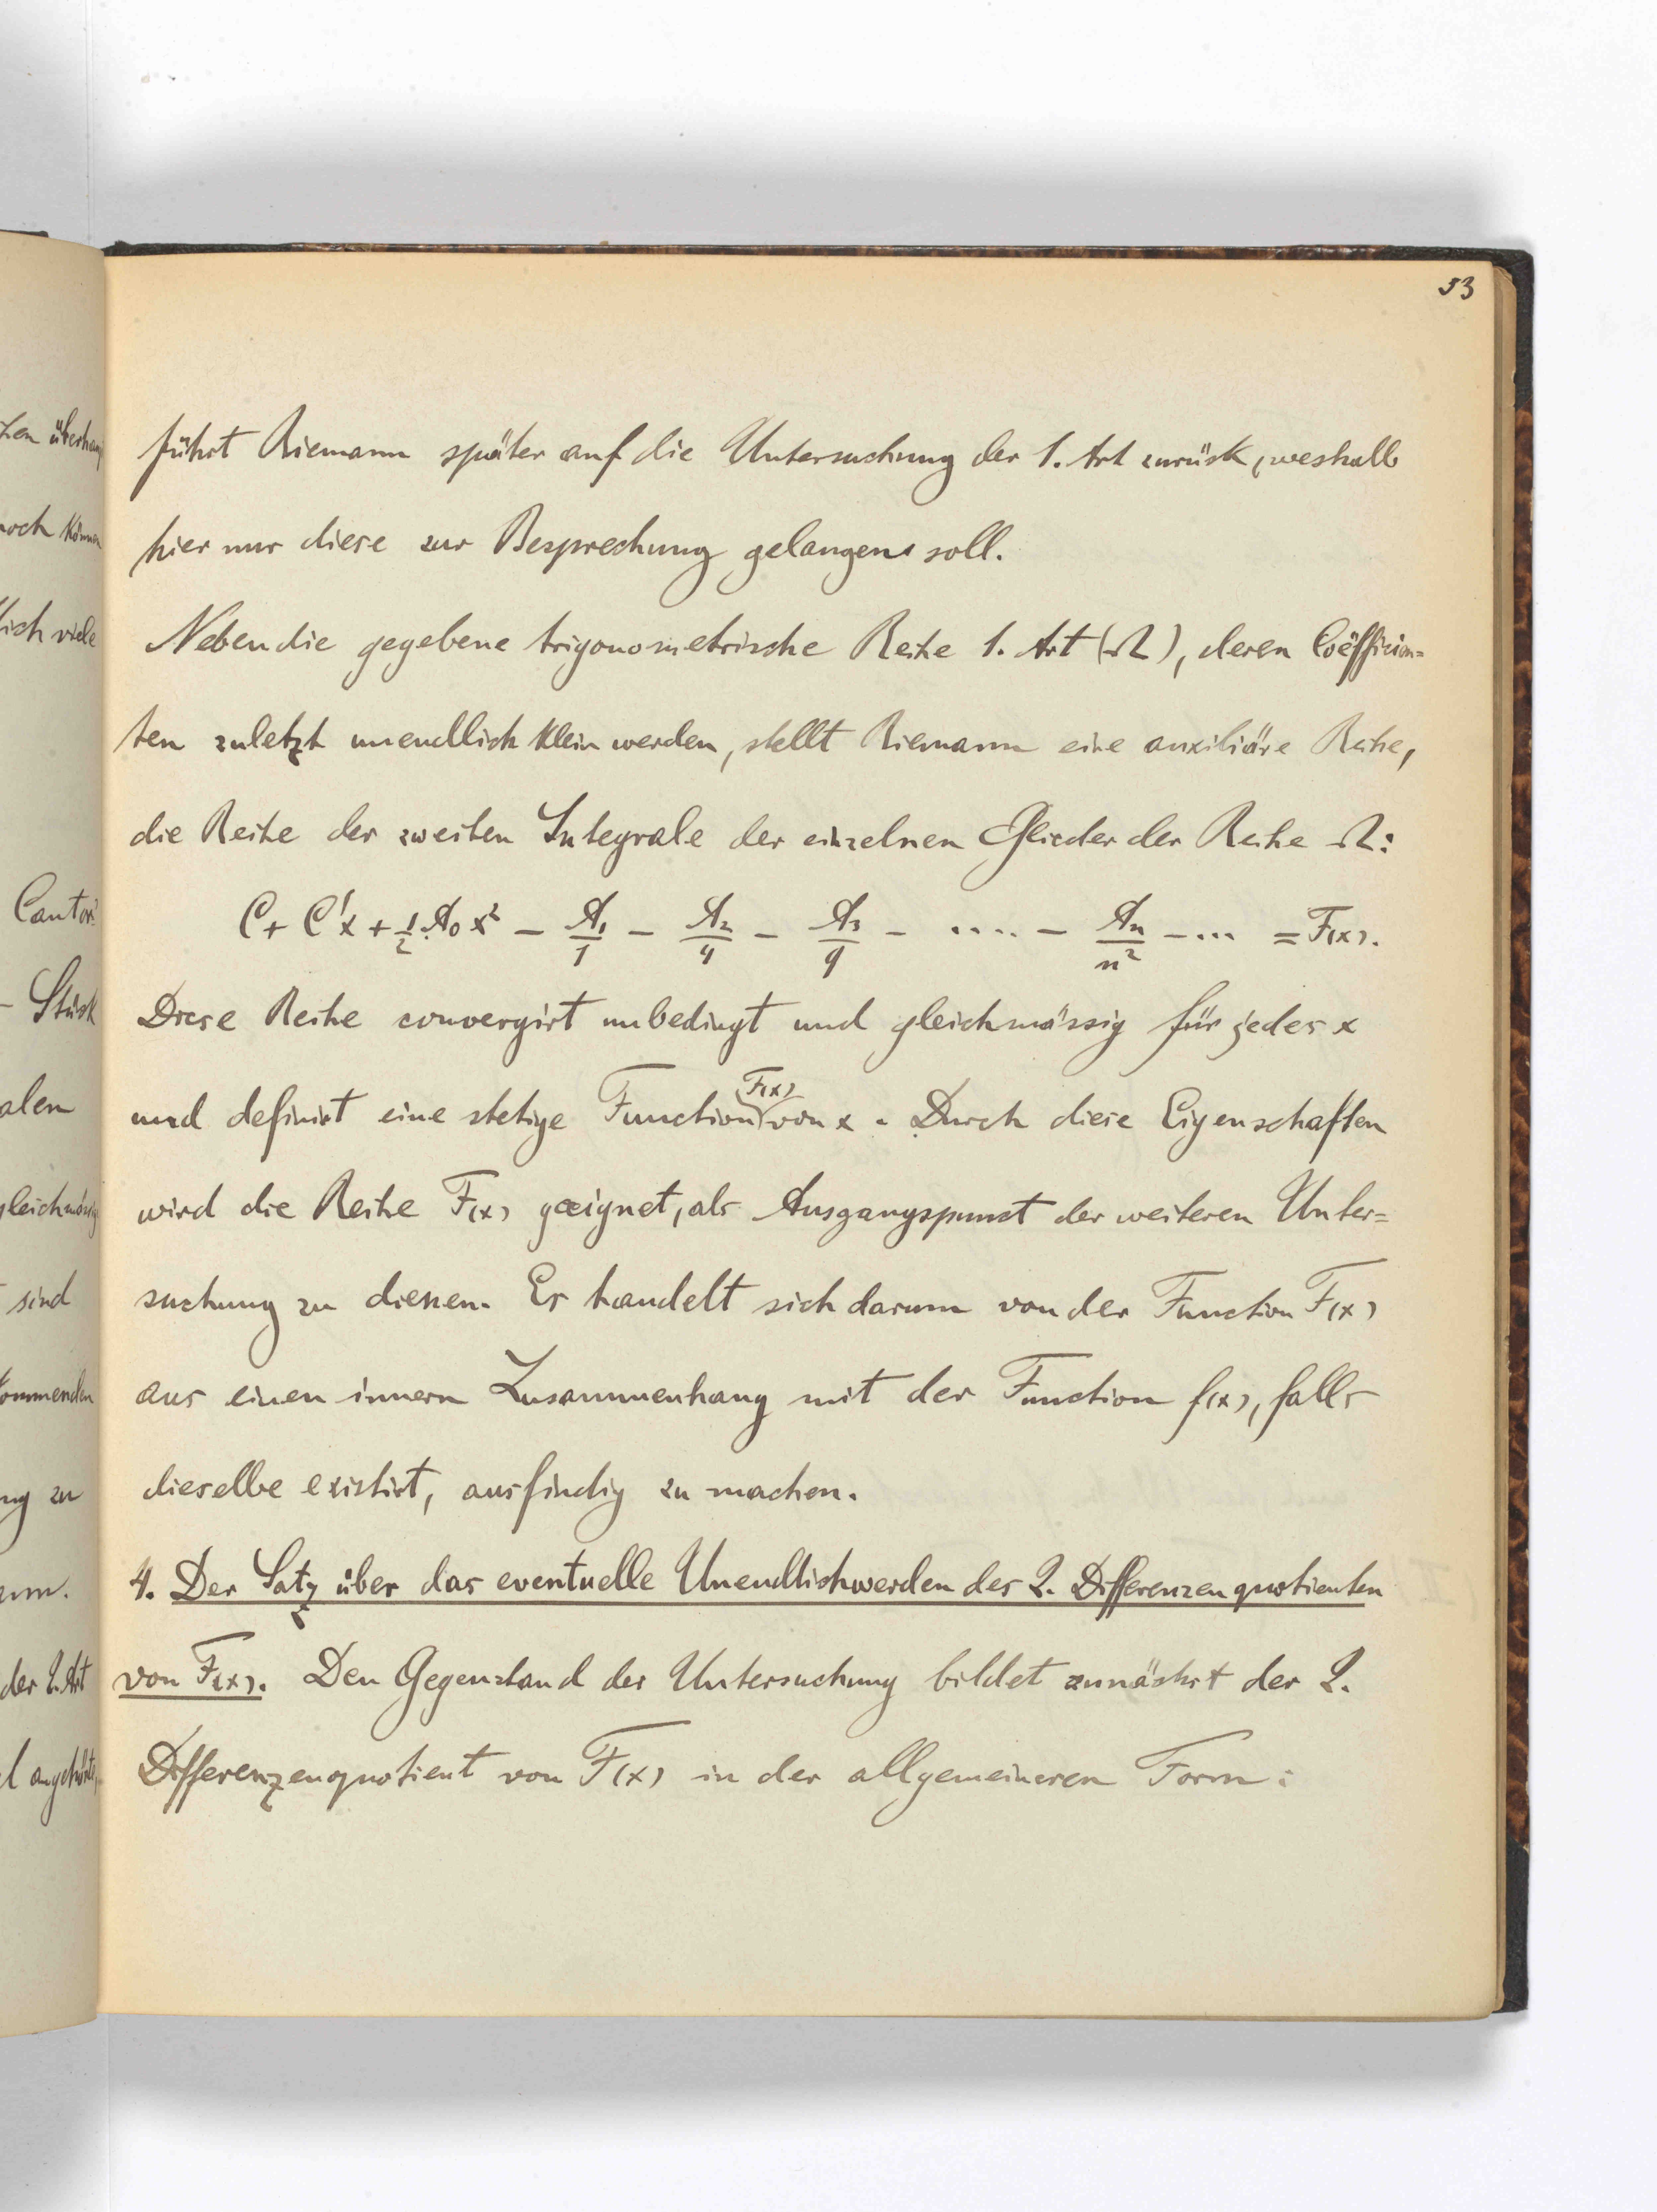 53
führt Riemann später auf die Untersuchung der 1. Art zurück, weshalb
hier nur diese zur Besprechung gelangen soll.
Neben die gegebene trigonometrische Reihe 1. Art (Ω), deren Coëfficien=
ten zuletzt unendlich klein werden, stellt Riemann eine auxiliäre Reihe,
die Reihe der zweiten Integrale der einzelnen Glieder der Reihe Ω:
C + C'x + 1/2 A₀x² - A₁/1 - A₂/4 - A₃/9 - .... - Aₙ/n² - ... = F(x).
Diese Reihe convergirt unbedingt und gleichmässig für jedes x
und definirt eine stetige Function F(x) von x. Durch diese Eigenschaften
wird die Reihe F(x) geeignet, als Ausgangspunct der weiteren Unter=
suchung zu dienen. Es handelt sich darum von der Function F(x)
aus einen innern Zusammenhang mit der Function f(x), falls
dieselbe existirt, ausfindig zu machen.
4. Der Satz über das eventuelle Unendlichwerden des 2. Differenzenquotienten
von F(x). Den Gegenstand der Untersuchung bildet zunächst der 2.
Differenzenquotient von F(x) in der allgemeineren Form: